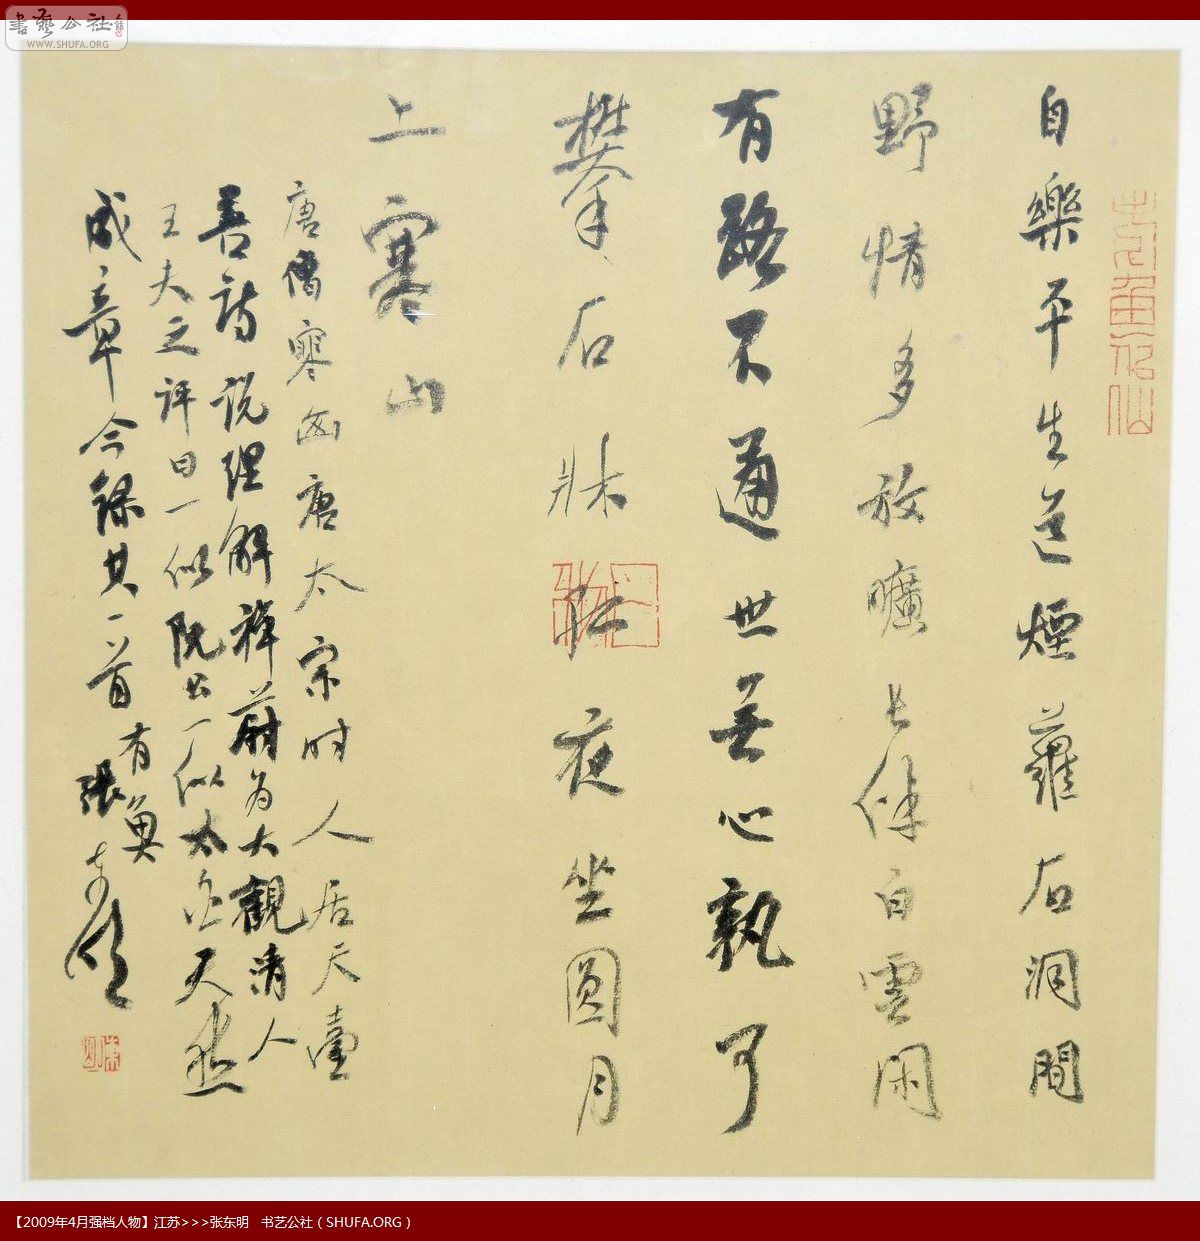 書藝公社
WWW.SHUFA.ORG
自樂平生道煙蘿石洞間
野情多放曠長伴白雲閑
有路不通世無心孰可
攀石牀孤夜坐圓月
上寒山
唐僧寒山唐太宗时人居天臺
善詩说理解禅蔚为大觀清人
王夫之评曰一似阮公一似太白天然
成章今録其一首
有奐
張东明
【2009年4月强档人物】江苏>>>张东明 书艺公社（SHUFA.ORG）